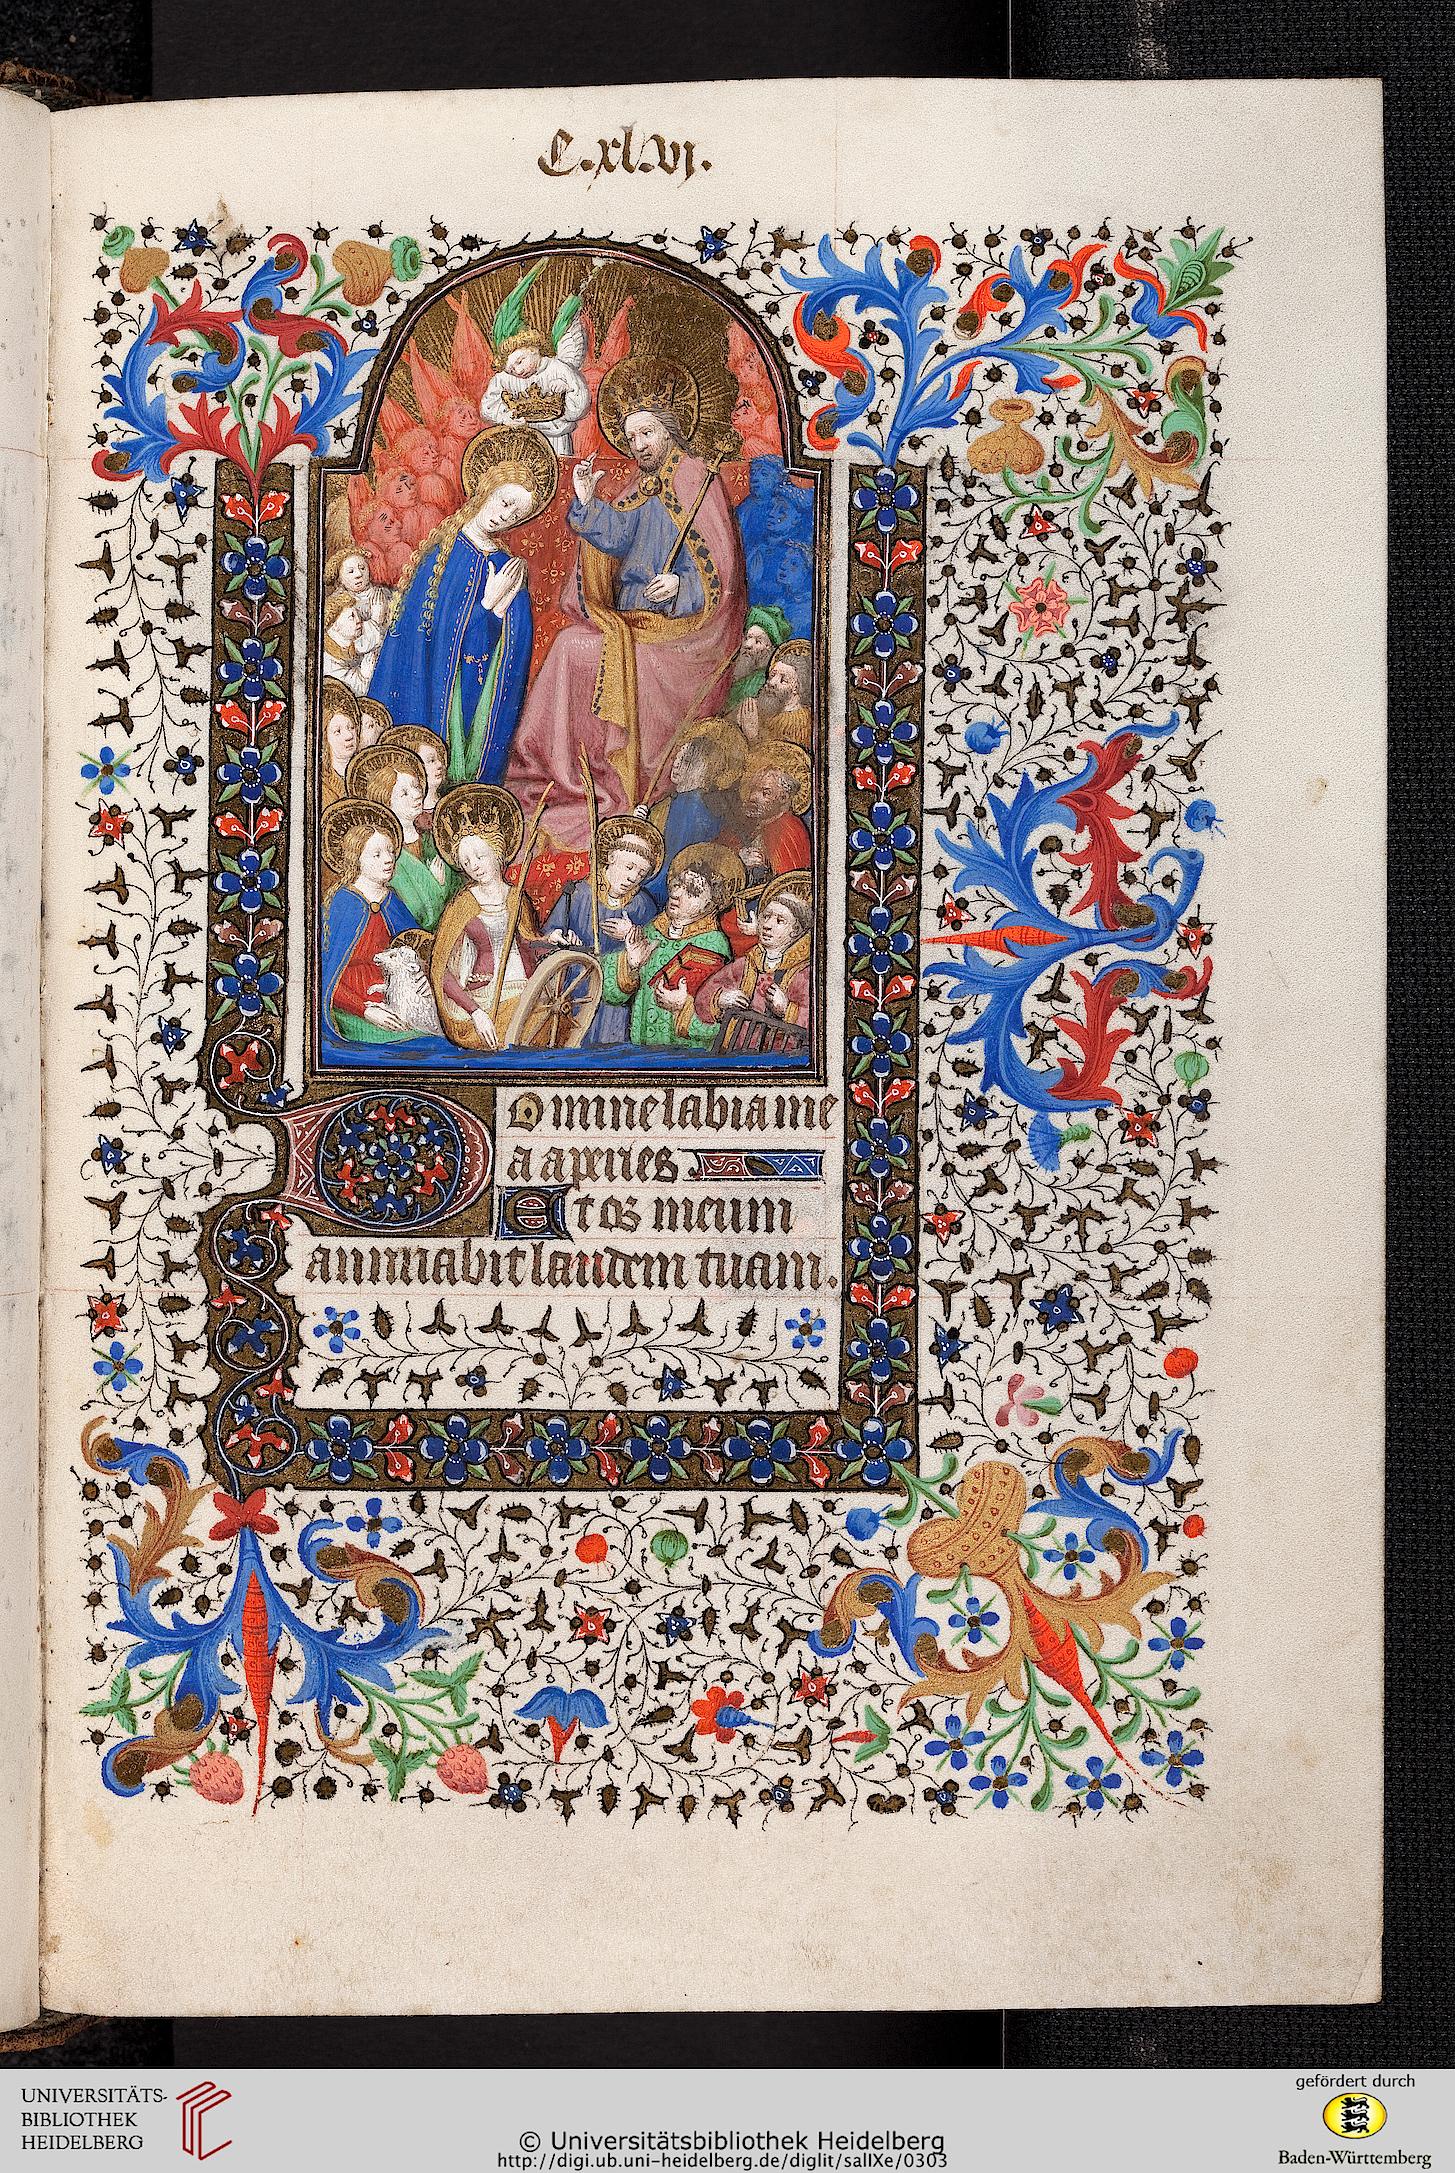 C.xl.vj.
Domine labia me
a aperies.
Et os meum
annunabit laudem tuam.
UNIVERSITÄTS-
BIBLIOTHEK
HEIDELBERG
© Universitätsbibliothek Heidelberg
http://digi.ub.uni-heidelberg.de/diglit/salIXe/0303
gefördert durch
Baden-Württemberg